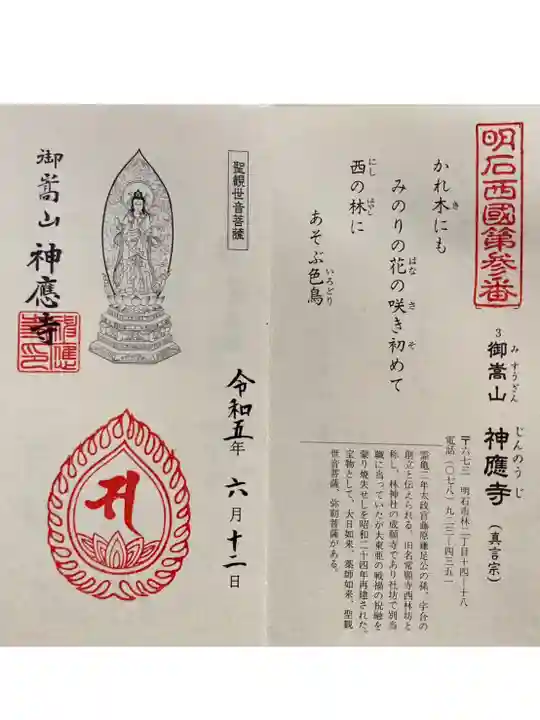 明石西國第参番
3 御嵩山 神應寺(真言宗)
みすうざん じんのうじ
〒六七三 明石市林二丁目十四ー十八
電話(〇七八)九二三ー四三五一
かれ木にも
き
みのりの花の咲き初めて
はな さ そ
西の林に
にし はやし
あそぶ色鳥
いろどり
霊亀二年太政官藤原鎌足公の孫、宇合の
創立と伝えられる。旧名常願寺西林坊と
称し、林神社の成願寺であり社坊で別当
職に当っていたが大東亜の戦禍の祝融を
蒙り焼失せしを昭和二十四年再建された。
宝物として、大日如来、薬師如来、聖観
世音菩薩、弥勒菩薩がある。
聖觀世音菩薩
御嵩山 神應寺
令和五年 六月十二日